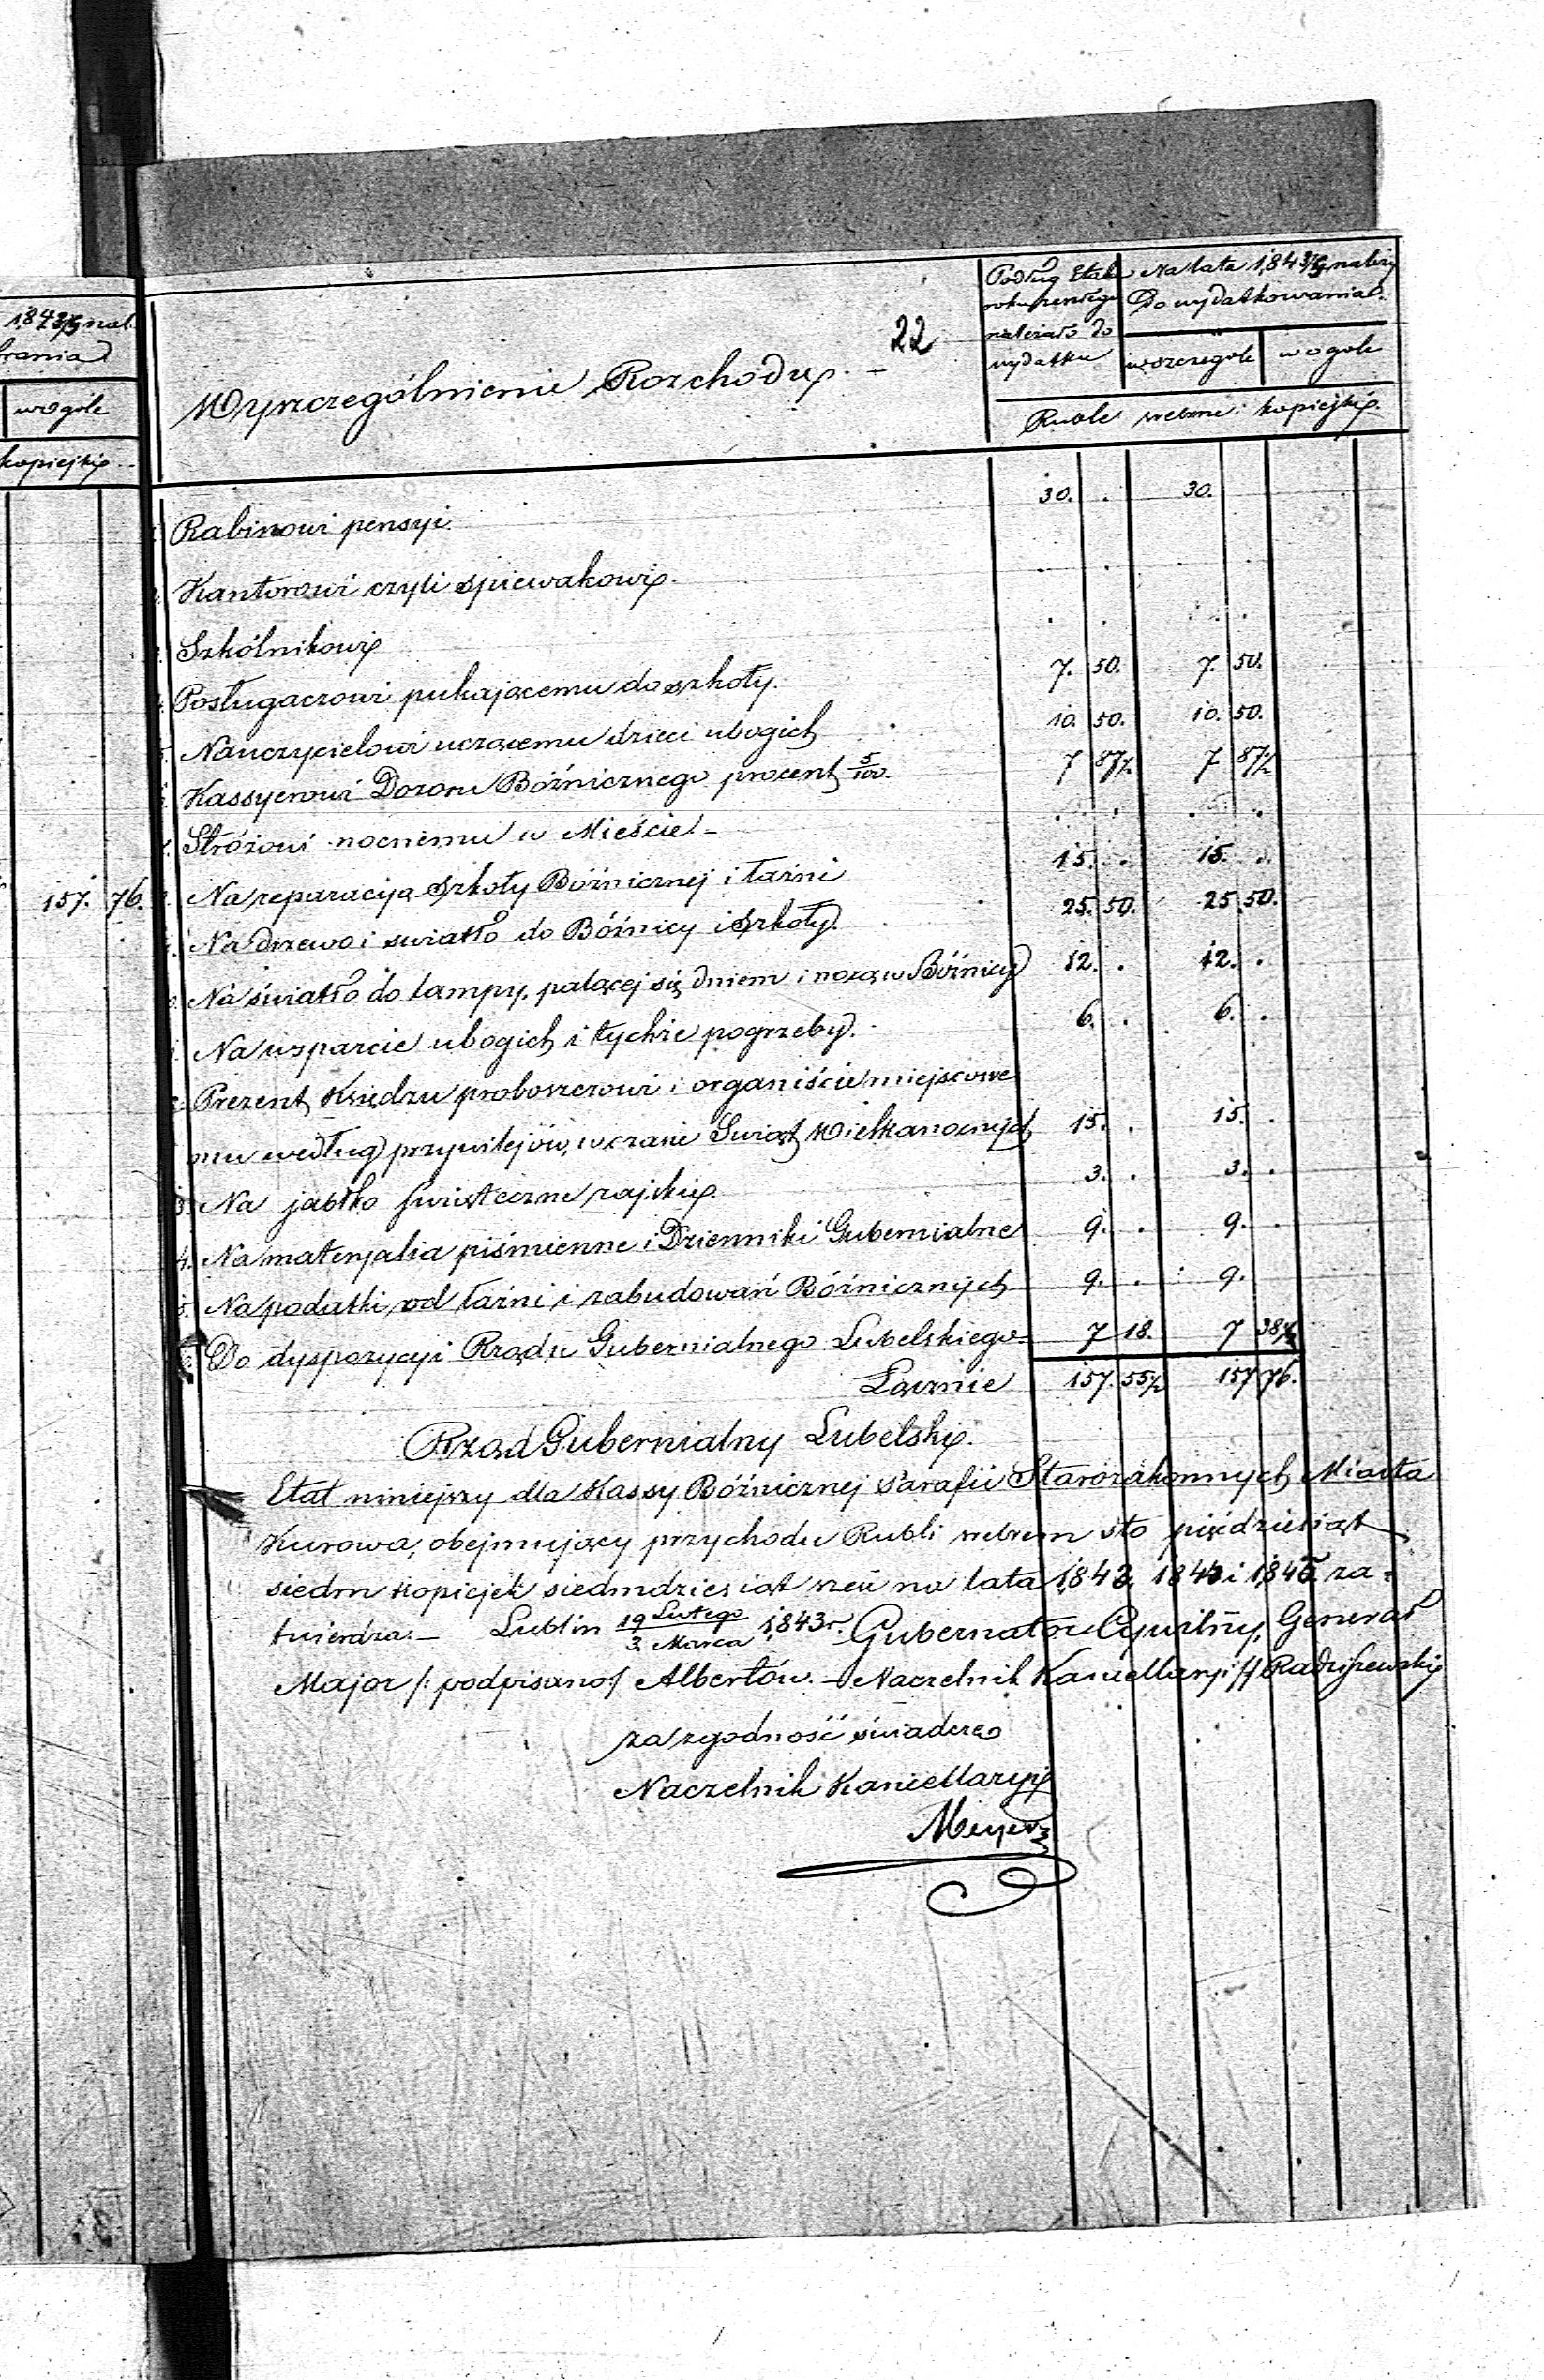 1843/5 nal.
brania
wogóle
kopiejki
157. 76.
22
Wyszczególnienie Rozchodu. –
Podług Etatu
roku zeszłego
należało do
wydatku
Na lata 1843/5 należy
Do wydatkowania.
wszczególe wogóle
Ruble srebrne i kopiejki.
Rabinowi pensyi. 30. . 30.
Kantorowi czyli spiewakowi.
Szkólnikowi
Posługaczowi pukającemu do szkoły. 7. 50. 7. 50.
Nauczycielowi uczącemu dzieci ubogich 10. 50. 10. 50.
Kassyerowi Dozoru Bóźnicznego procent 5/100. 7 87½ 7 87½
Stróżowi nocnemu w Mieście. –
Na reparacyą szkoły Bóźnicznej i łaźni 15. . 15. .
Na drzewo i swiatło do Bóźnicy i szkoły. 25. 50. 25. 50.
Na światło do lampy, palącej się dniem i nocą w Bóźnicy 12. . 12. .
Na wsparcie ubogich i tychże pogrzeby. 6. . 6. .
Prezent Księdzu proboszczowi i organiście miejscowe
mu według przywilejów, w czasie Swiąt Wielkanocnych 15. . 15. .
3. Na jabłko swiąteczne rajskie. 3. . 3. .
4. Na materyalia piśmienne i Dzienniki Gubernialne 9. . 9. .
5. Na podatki od łaźni i zabudowań Bóźnicznych 9. . 9.
Do dyspozycyi Rządu Gubernialnego Lubelskiego 7 18. 7 38½
Łącznie 157. 55½ 157 76.
Rząd Gubernialny Lubelski.
Etat niniejszy dla Kassy Bóźnicznej Parafii Starozakonnych Miasta
Kurowa, obejmujący przychodu Rubli srebrem sto pięćdziesiąt
siedm kopiejek siedmdziesiąt sześć na lata 1843, 1844 i 1845 za=
twierdza. – Lublin 19 Lutego/3 Marca 1843 r. Gubernator Cywilny, Generał
Major /: podpisano :/ Albertów. – Naczelnik Kancellaryi // Radziszewski
za zgodność świadczę
Naczelnik Kancellaryi
Meyer